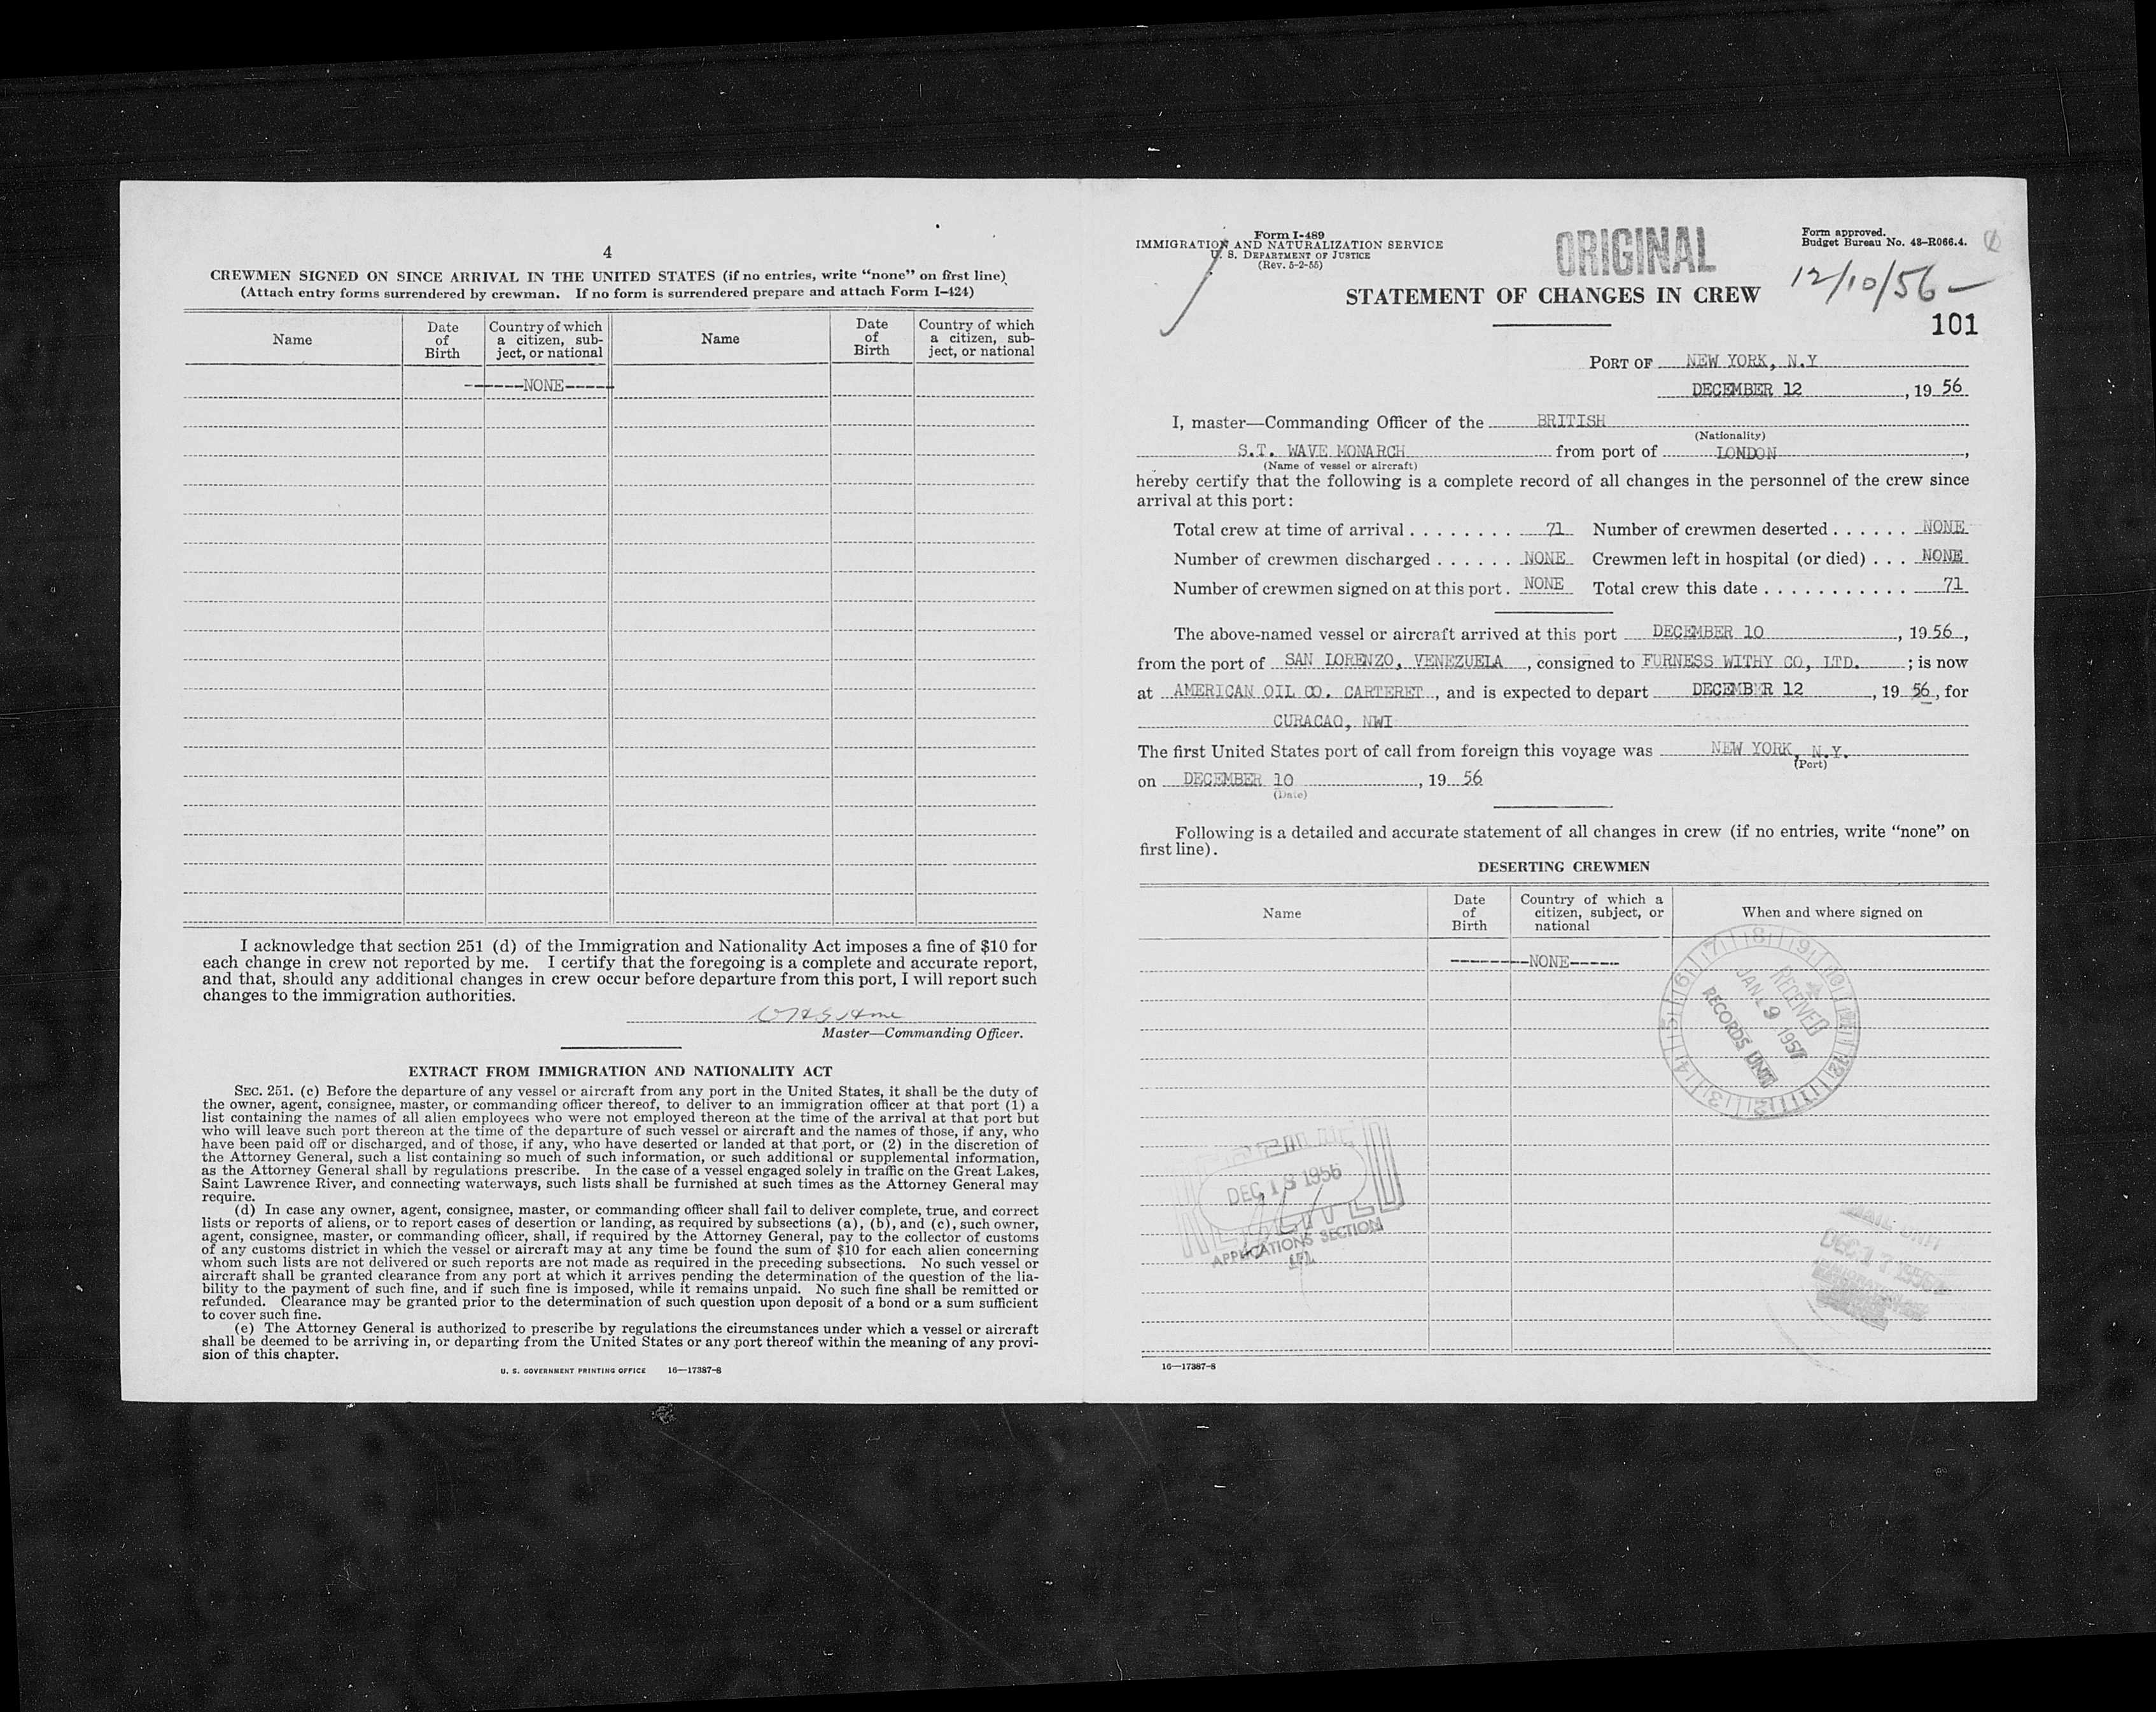 4
CREWMEN SIGNED ON SINCE ARRIVAL IN THE UNITED STATES (if no entries, write “none” on first line)
(Attach entry forms surrendered by crewman. If no form is surrendered prepare and attach Form I–424)
Name Date of Birth Country of which a citizen, sub-ject, or national Name Date of Birth Country of which a citizen, sub-ject, or national
-------NONE------
I acknowledge that section 251 (d) of the Immigration and Nationality Act imposes a fine of $10 for
each change in crew not reported by me. I certify that the foregoing is a complete and accurate report,
and that, should any additional changes in crew occur before departure from this port, I will report such
changes to the immigration authorities.
Master—Commanding Officer.
EXTRACT FROM IMMIGRATION AND NATIONALITY ACT
SEC. 251. (c) Before the departure of any vessel or aircraft from any port in the United States, it shall be the duty of
the owner, agent, consignee, master, or commanding officer thereof, to deliver to an immigration officer at that port (1) a
list containing the names of all alien employees who were not employed thereon at the time of the arrival at that port but
who will leave such port thereon at the time of the departure of such vessel or aircraft and the names of those, if any, who
have been paid off or discharged, and of those, if any, who have deserted or landed at that port, or (2) in the discretion of
the Attorney General, such a list containing so much of such information, or such additional or supplemental information,
as the Attorney General shall by regulations prescribe. In the case of a vessel engaged solely in traffic on the Great Lakes,
Saint Lawrence River, and connecting waterways, such lists shall be furnished at such times as the Attorney General may
require.
(d) In case any owner, agent, consignee, master, or commanding officer shall fail to deliver complete, true, and correct
lists or reports of aliens, or to report cases of desertion or landing, as required by subsections (a), (b), and (c), such owner,
agent, consignee, master, or commanding officer, shall, if required by the Attorney General, pay to the collector of customs
of any customs district in which the vessel or aircraft may at any time be found the sum of $10 for each alien concerning
whom such lists are not delivered or such reports are not made as required in the preceding subsections. No such vessel or
aircraft shall be granted clearance from any port at which it arrives pending the determination of the question of the lia-
bility to the payment of such fine, and if such fine is imposed, while it remains unpaid. No such fine shall be remitted or
refunded. Clearance may be granted prior to the determination of such question upon deposit of a bond or a sum sufficient
to cover such fine.
(e) The Attorney General is authorized to prescribe by regulations the circumstances under which a vessel or aircraft
shall be deemed to be arriving in, or departing from the United States or any port thereof within the meaning of any provi-
sion of this chapter.
U. S. GOVERNMENT PRINTING OFFICE 16—17387-8
Form I-489
IMMIGRATION AND NATURALIZATION SERVICE
U. S. DEPARTMENT OF JUSTICE
(Rev. 5-2-55)
ORIGINAL
Form approved.
Budget Bureau No. 43–R066.4.
12/10/56 —
STATEMENT OF CHANGES IN CREW
101
PORT OF NEW YORK, N.Y
DECEMBER 12, 19 56
I, master—Commanding Officer of the BRITISH
(Nationality)
S.T. WAVE MONARCH from port of LONDON,
(Name of vessel or aircraft)
hereby certify that the following is a complete record of all changes in the personnel of the crew since
arrival at this port:
Total crew at time of arrival . . . . . . . . 71 Number of crewmen deserted . . . . . . NONE
Number of crewmen discharged . . . . . . NONE Crewmen left in hospital (or died) . . . NONE
Number of crewmen signed on at this port . NONE Total crew this date . . . . . . . . . . . . 71
The above-named vessel or aircraft arrived at this port DECEMBER 10, 19 56,
from the port of SAN LORENZO, VENEZUELA, consigned to FURNESS WITHY CO, LTD. ; is now
at AMERICAN OIL CO. CARTERET, and is expected to depart DECEMBER 12, 19 56, for
CURACAO, NWI
The first United States port of call from foreign this voyage was NEW YORK, N.Y.
(Port)
on DECEMBER 10, 19 56
(Date)
Following is a detailed and accurate statement of all changes in crew (if no entries, write “none” on
first line).
DESERTING CREWMEN
Name Date of Birth Country of which a citizen, subject, or national When and where signed on
---------NONE------
RECEIVED
JAN 9 1957
RECORDS UNIT
DEC 13 1956
APPLICATIONS SECTION
DEC 17 1956
16—17387-8